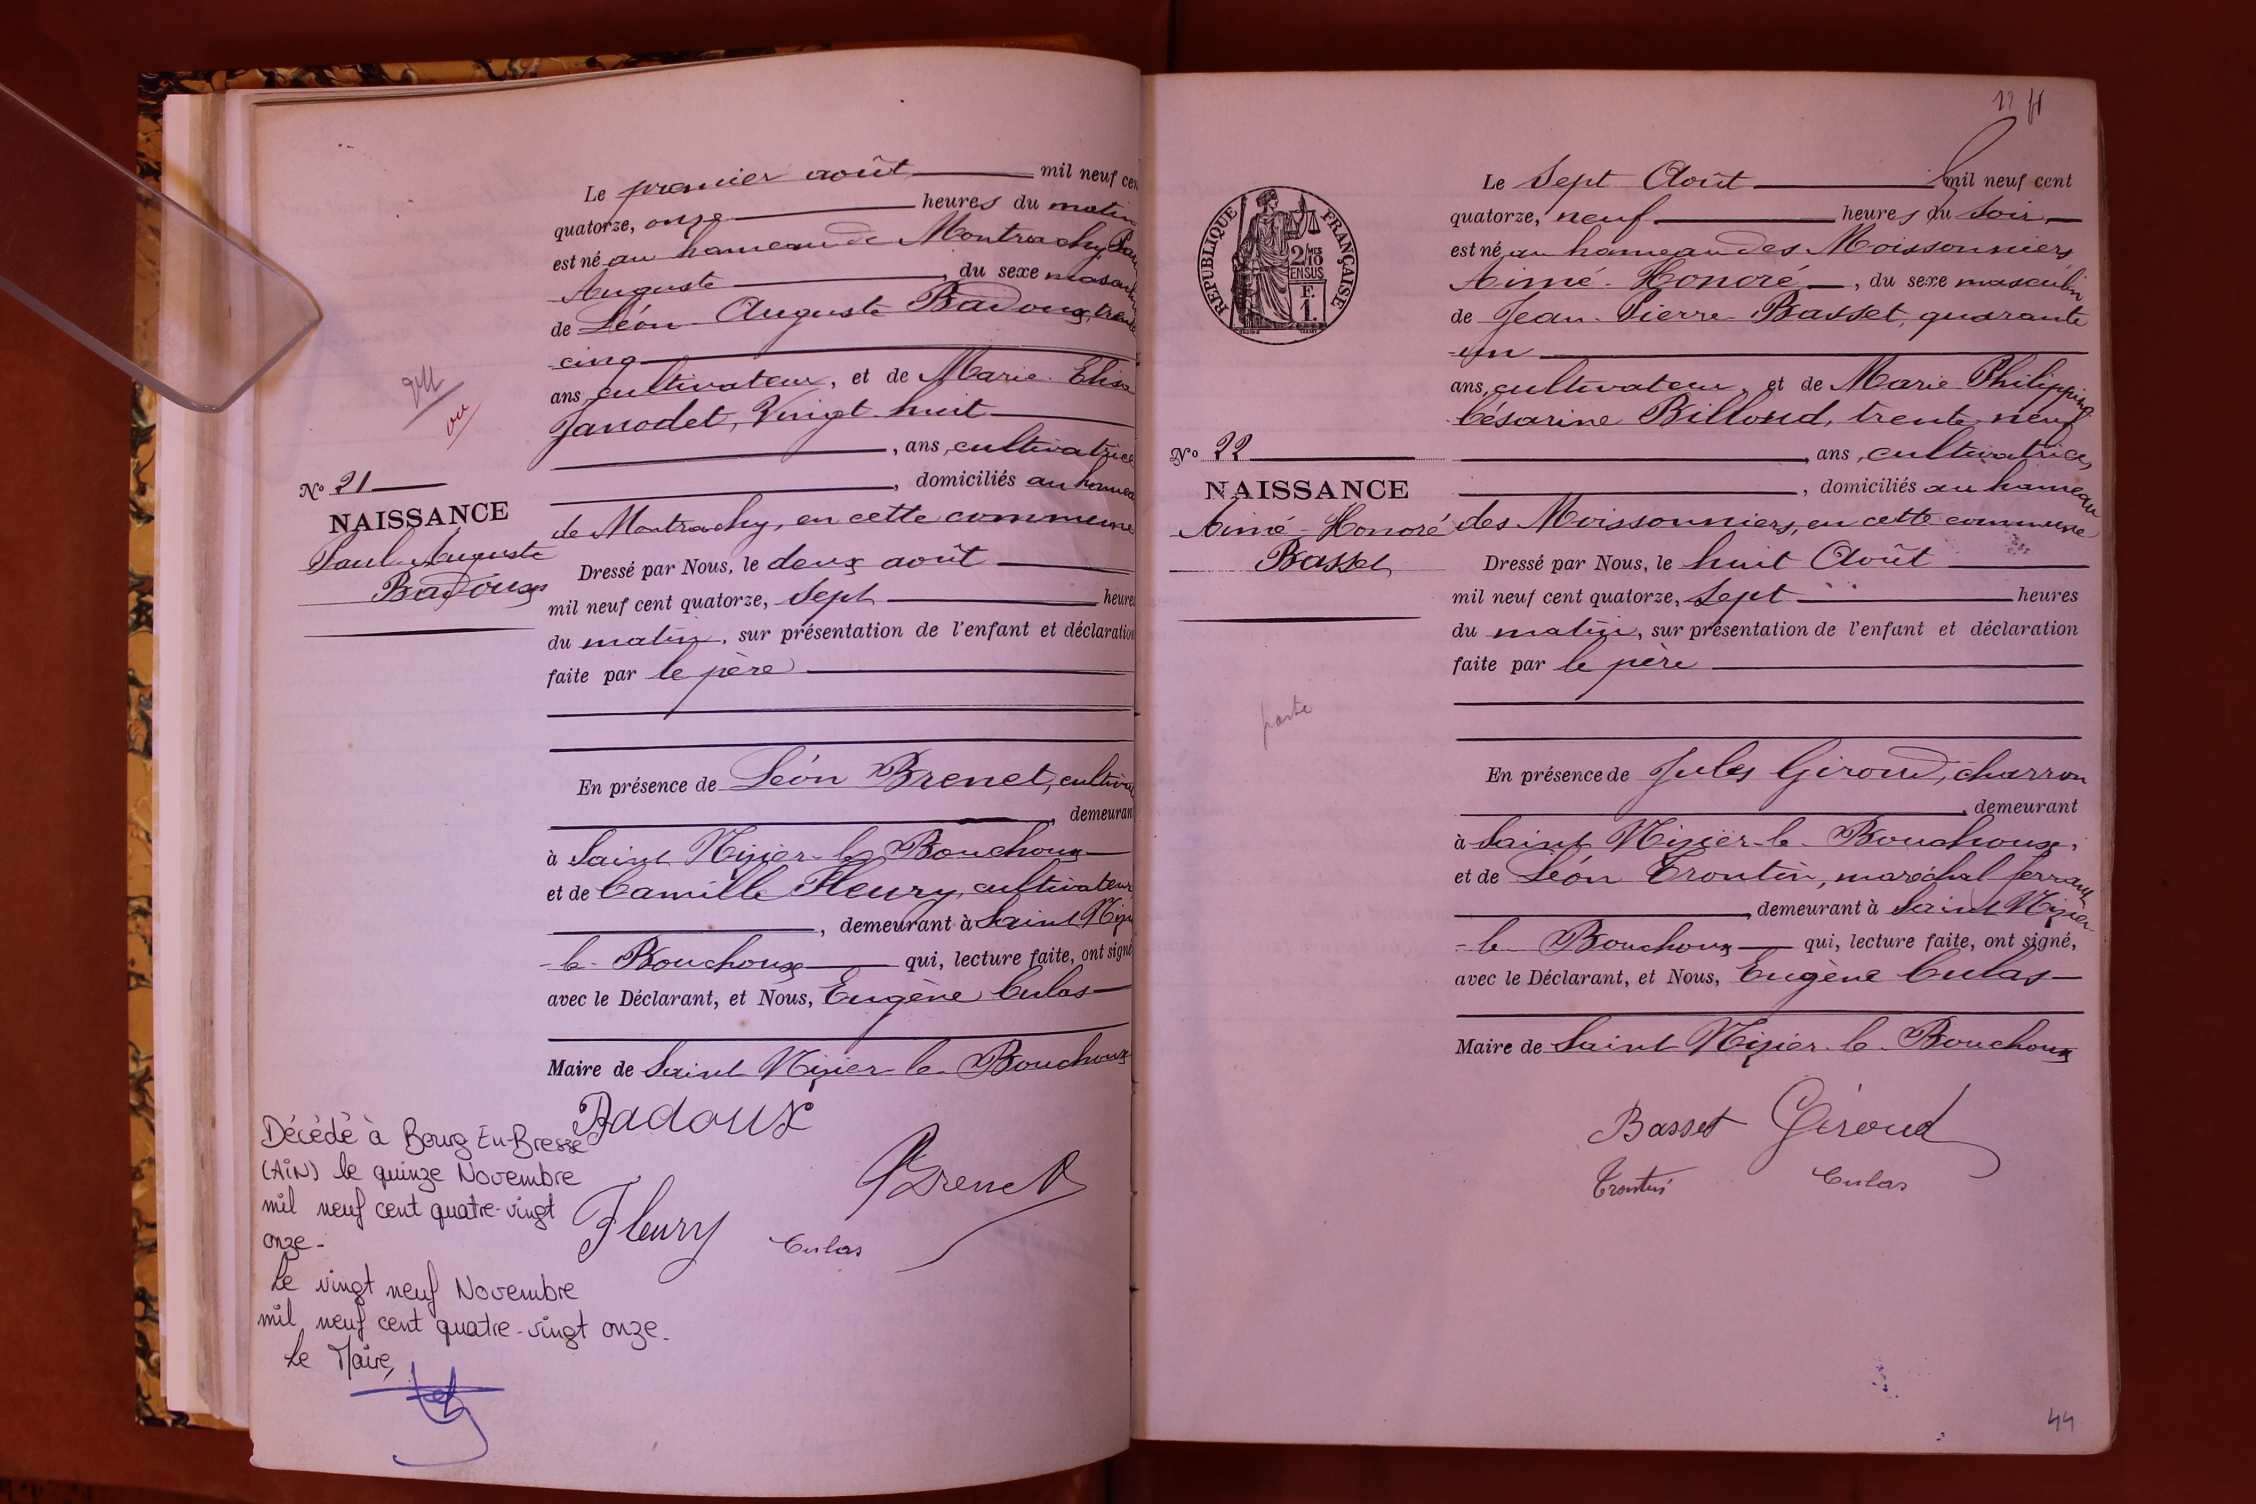 Le premier août mil neuf cen
quatorze, onze heures du matin
est né au hameau de Montrachy, Paul
Auguste, du sexe masculin
de Léon Auguste Badoux, trente
cinq
ans, cultivateur, et de Marie Elisa
Janodet, Vingt huit
, ans, cultivatrice
, domiciliés au hameau
de Montrachy, en cette commune
Dressé par Nous, le deux août
mil neuf cent quatorze, sept heures
du matin, sur présentation de l'enfant et déclaration
faite par le père
En présence de Léon Brenet, cultiva
demeurant
à Saint Nizier-le Bouchoux
et de Camille Fleury, cultivateur
, demeurant à Saint Nizi
-le-Bouchoux qui, lecture faite, ont signé
avec le Déclarant, et Nous, Eugène Culas
Maire de Saint Nizier-le-Bouchoux
No 21
NAISSANCE
Paul Auguste
Badoux
vu
Badoux
Brenet
Fleury
Culas
Décédé à Bourg En-Bresse
(AiN) le quinze Novembre
mil neuf cent quatre-vingt
onze-
Le vingt neuf Novembre
mil neuf cent quatre-vingt onze.
Le Maire,
Le Sept Août mil neuf cent
quatorze, neuf heures du soir
est né au hameau des Moissonniers
Aimé-Honoré, du sexe masculin
de Jean-Pierre Basset, quarante
un
ans, cultivateur, et de Marie Philippine
Césarine Billoud, trente neuf
, ans, cultivatrice,
, domiciliés au hameau
des Moissonniers, en cette commune
Dressé par Nous, le huit Août
mil neuf cent quatorze, sept heures
du matin, sur présentation de l'enfant et déclaration
faite par le père
En présence de Jules Giroud, charron
, demeurant
à Saint Nizier-le-Bouchoux,
et de Léon Troutin, maréchal ferrant
, demeurant à Saint Nizier-
-le-Bouchoux qui, lecture faite, ont signé,
avec le Déclarant, et Nous, Eugène Culas
Maire de Saint Nizier-le-Bouchoux
RÉPUBLIQUE FRANÇAISE
2/10 EN SUS
F. 1.
No 22
NAISSANCE
Aimé-Honoré
Basset
Basset Géroud
Troutin Culas
44